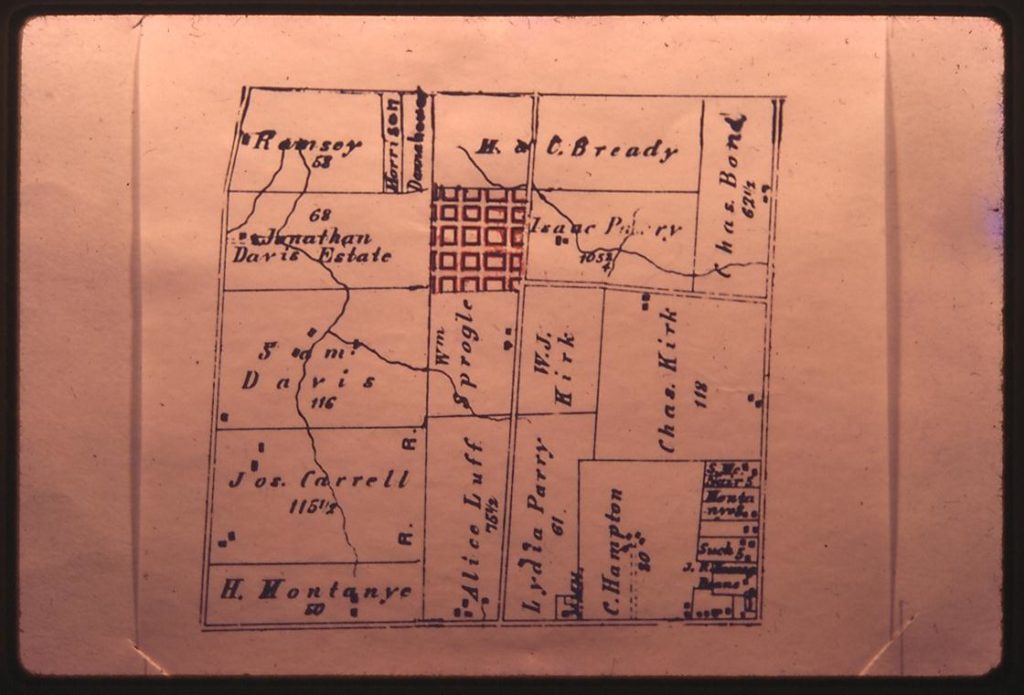 Ramsey
58
Morrison
Dannehower
M. & C. Bready
Chas. Bond
62½
68
Jonathan
Davis Estate
Isaac
Wm
Sprogle
W.J.
Kirk
Chas. Kirk
118
Sam'l
Davis
116
R.
Jos. Carrell
115½
R.
Alice Luff
76½
Lydia Parry
61
C. Hampton
80
Monta
nye
Such 5
J. R.
Evans
H. Montanye
50